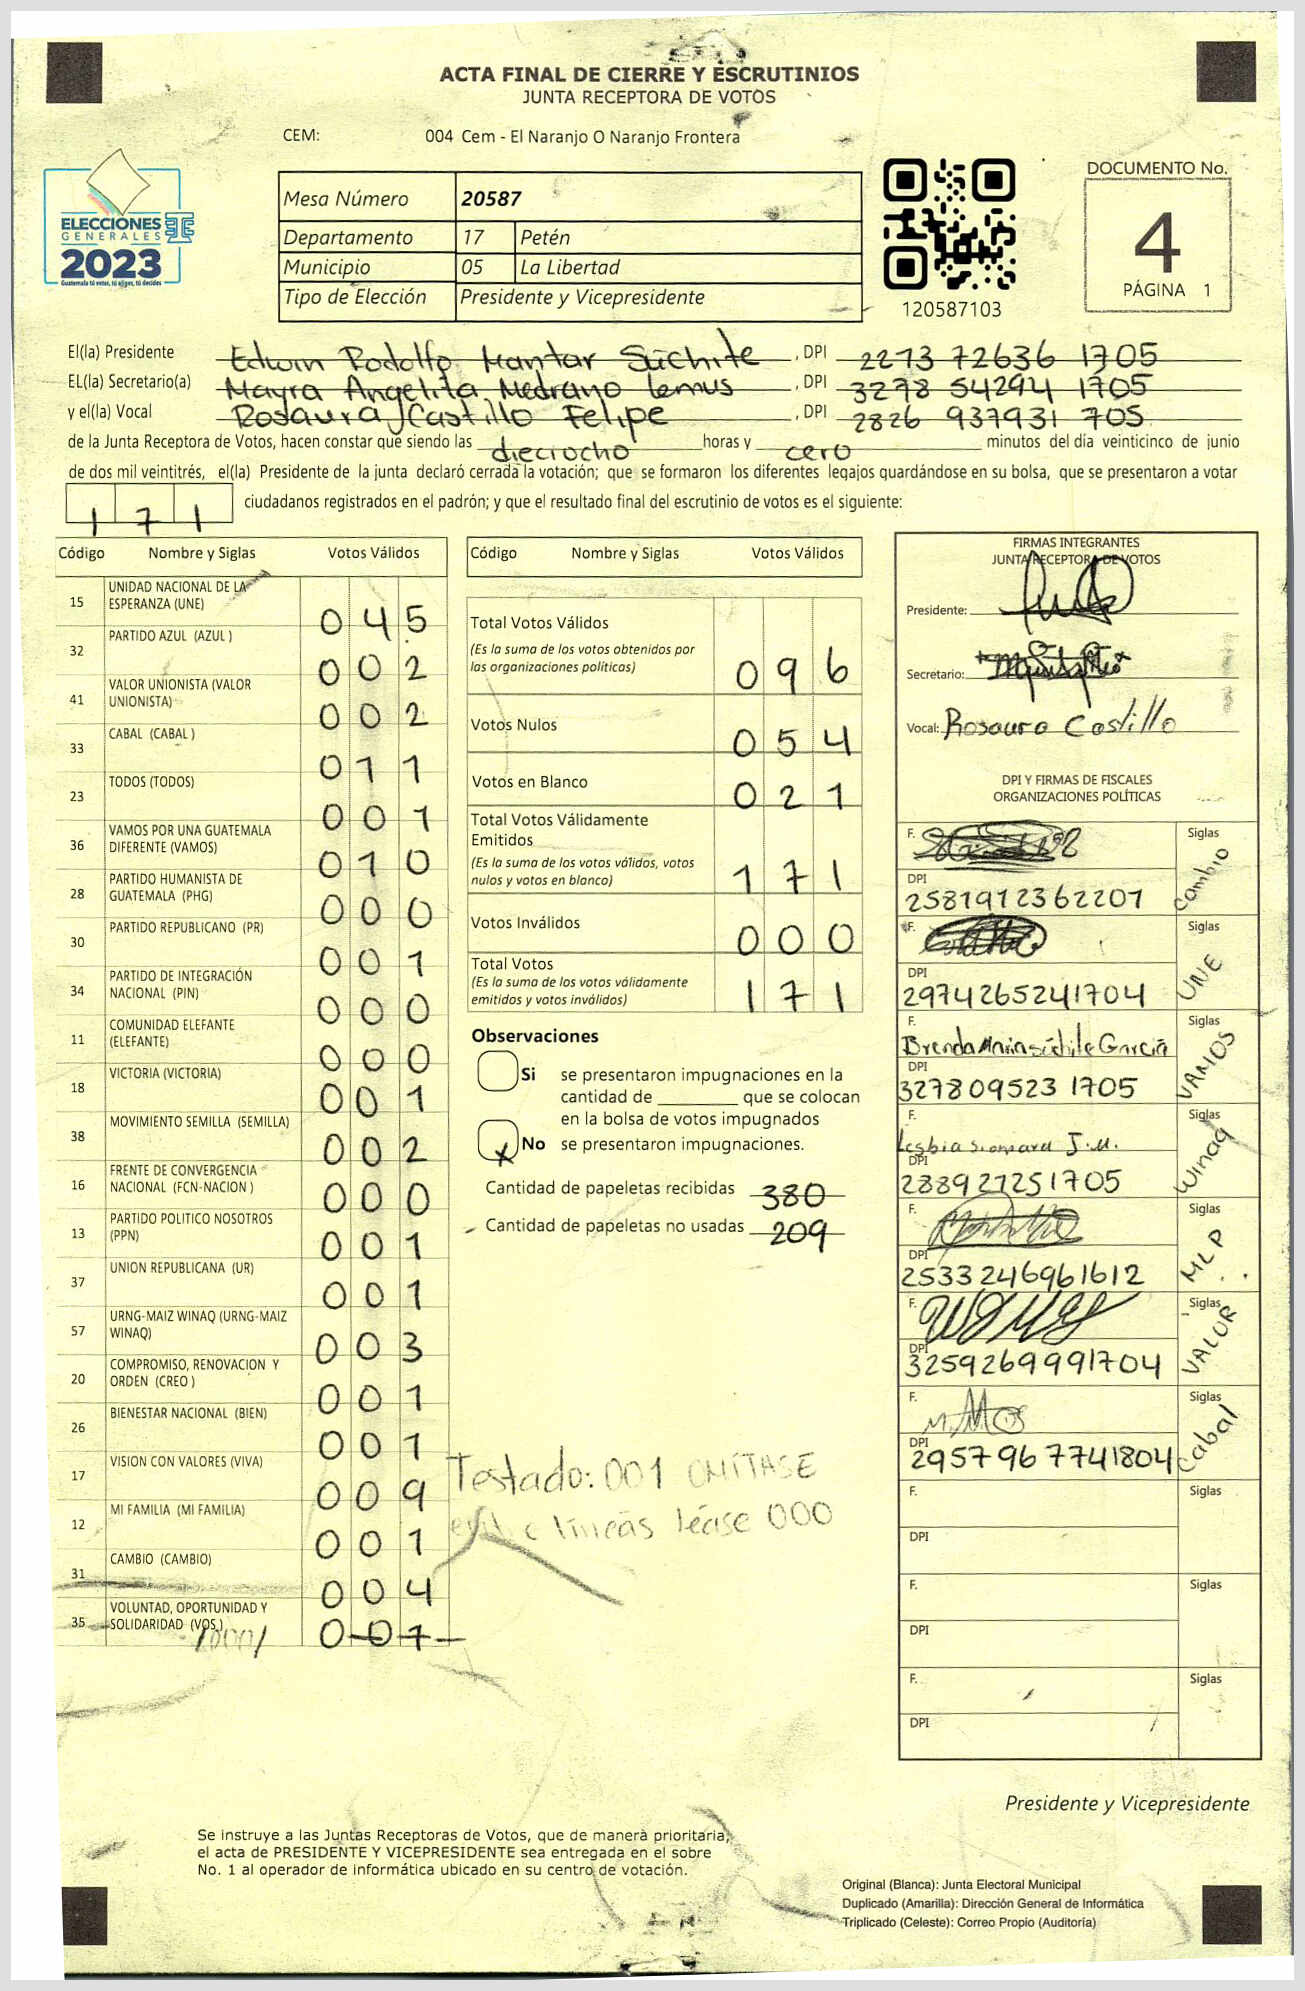 ACTA FINAL DE CIERRE Y ESCRUTINIOS
JUNTA RECEPTORA DE VOTOS
CEM: 004 Cem - El Naranjo O Naranjo Frontera
ELECCIONES
GENERALES
2023
Guatemala tú votas, tú eliges, tú decides
Mesa Número 20587
Departamento 17 Petén
Municipio 05 La Libertad
Tipo de Elección Presidente y Vicepresidente
120587103
DOCUMENTO No.
4
PÁGINA 1
El(la) Presidente Edwin Rodolfo Mantar Súchite, DPI 2273 72636 1705
EL(la) Secretario(a) Mayra Angelita Medrano Lemus, DPI 3278 54294 1705
y el(la) Vocal Rosaura Castillo Felipe, DPI 2826 937931 705
de la Junta Receptora de Votos, hacen constar que siendo las dieciocho horas y cero minutos del día veinticinco de junio
de dos mil veintitrés, el(la) Presidente de la junta declaró cerrada la votación; que se formaron los diferentes legajos guardándose en su bolsa, que se presentaron a votar
171 ciudadanos registrados en el padrón; y que el resultado final del escrutinio de votos es el siguiente:
Código Nombre y Siglas Votos Válidos
15 UNIDAD NACIONAL DE LA ESPERANZA (UNE) 045
32 PARTIDO AZUL (AZUL ) 002
41 VALOR UNIONISTA (VALOR UNIONISTA) 002
33 CABAL (CABAL ) 011
23 TODOS (TODOS) 001
36 VAMOS POR UNA GUATEMALA DIFERENTE (VAMOS) 010
28 PARTIDO HUMANISTA DE GUATEMALA (PHG) 000
30 PARTIDO REPUBLICANO (PR) 001
34 PARTIDO DE INTEGRACIÓN NACIONAL (PIN) 000
11 COMUNIDAD ELEFANTE (ELEFANTE) 000
18 VICTORIA (VICTORIA) 001
38 MOVIMIENTO SEMILLA (SEMILLA) 002
16 FRENTE DE CONVERGENCIA NACIONAL (FCN-NACION ) 000
13 PARTIDO POLITICO NOSOTROS (PPN) 001
37 UNION REPUBLICANA (UR) 001
57 URNG-MAIZ WINAQ (URNG-MAIZ WINAQ) 003
20 COMPROMISO, RENOVACION Y ORDEN (CREO ) 001
26 BIENESTAR NACIONAL (BIEN) 001
17 VISION CON VALORES (VIVA) 009
12 MI FAMILIA (MI FAMILIA) 001
31 CAMBIO (CAMBIO) 004
35 VOLUNTAD, OPORTUNIDAD Y SOLIDARIDAD (VOS ) /000/ 001
Código Nombre y Siglas Votos Válidos
Total Votos Válidos 096
(Es la suma de los votos obtenidos por
las organizaciones políticas)
Votos Nulos 054
Votos en Blanco 021
Total Votos Válidamente
Emitidos 171
(Es la suma de los votos válidos, votos
nulos y votos en blanco)
Votos Inválidos 000
Total Votos 171
(Es la suma de los votos válidamente
emitidos y votos inválidos)
Observaciones
Si se presentaron impugnaciones en la
cantidad de ________ que se colocan
en la bolsa de votos impugnados
x No se presentaron impugnaciones.
Cantidad de papeletas recibidas 380
Cantidad de papeletas no usadas 209
Testado: 001 OMÍTASE
líneas léase 000
FIRMAS INTEGRANTES
JUNTA RECEPTORA DE VOTOS
Presidente:
Secretario:
Vocal: Rosaura Castillo
DPI Y FIRMAS DE FISCALES
ORGANIZACIONES POLÍTICAS
F. Siglas cambio
DPI 2581912362201
F. Siglas UNE
DPI 2974265241704
F. Brenda Siglas VAMOS
DPI 327809523 1705
F. Lesbia J.M. Siglas Winaq
DPI 288927251705
F. Siglas MLP
DPI 2533246961612
F. Siglas VALOR
DPI 3259269991704
F. Siglas Cabal
DPI 2957967741804
F. Siglas
DPI
F. Siglas
DPI
F. Siglas
DPI
Presidente y Vicepresidente
Se instruye a las Juntas Receptoras de Votos, que de manera prioritaria,
el acta de PRESIDENTE Y VICEPRESIDENTE sea entregada en el sobre
No. 1 al operador de informática ubicado en su centro de votación.
Original (Blanca): Junta Electoral Municipal
Duplicado (Amarilla): Dirección General de Informática
Triplicado (Celeste): Correo Propio (Auditoría)